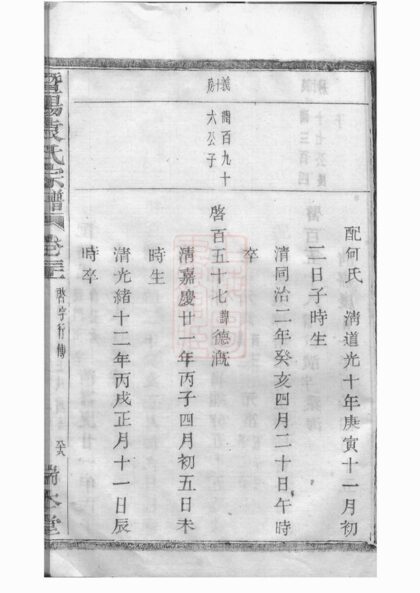 配何氏 清道光十年庚寅十一月初
二日子時生
清同治二年癸亥四月二十日午時
卒
啓百五十七諱德溉
清嘉慶廿一年丙子四月初五日未
時生
清光緒十二年丙戌正月十一日辰
時卒
義十房
啓百九十
六公子
暨陽袁氏宗譜 卷三 啓字行傳